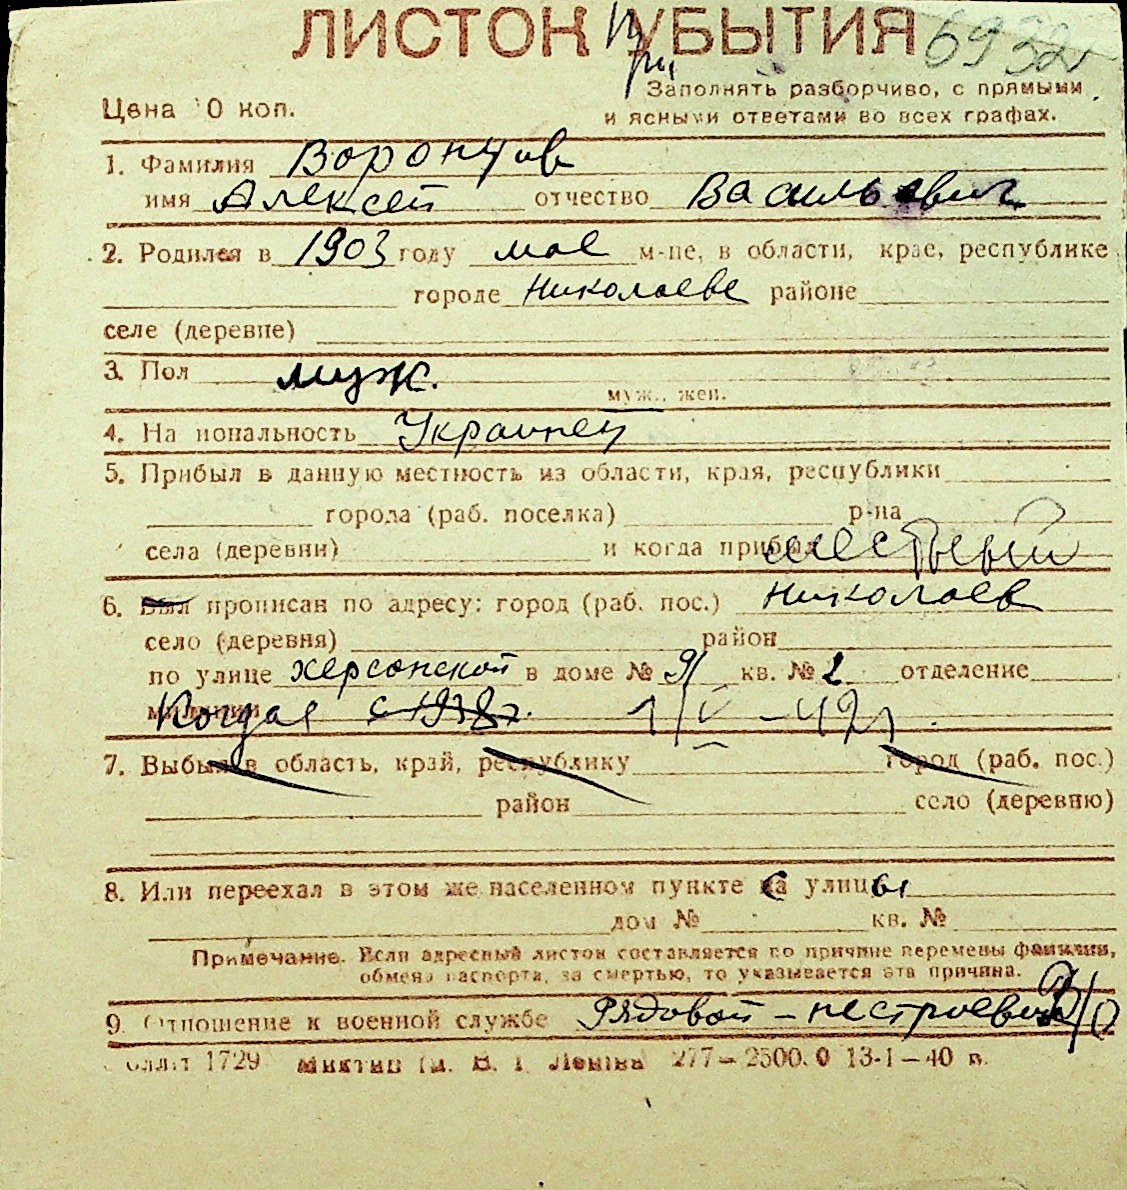 ЛИСТОК УБЫТИЯ 6932
При
Заполнять разборчиво, с прямыми
Цена 10 коп. и ясными ответами во всех графах.
1. Фамилия Воронцов
имя Алексей отчество Васильевич
2. Родился в 1903 году мае м-це, в области, крае, республике
городе Николаеве районе
селе (деревне)
3. Пол муж.
муж., жен.
4. Национальность Украинец
5. Прибыл в данную местность из области, края, республики
города (раб. поселка) р-на
села (деревни) и когда прибыл местный
6. Был прописан по адресу: город (раб. пос.) Николаев
село (деревня) район
по улице Херсонской в доме № 91 кв. № 2 отделение
милиции Когда с 1938 г. 1/V-42 г.
7. Выбыл в область, край, республику город (раб. пос.)
район село (деревню)
8. Или переехал в этом же населенном пункте с улицы
дом № кв. №
Примечание. Если адресный листок составляется по причине перемены фамилии,
обмена паспорта, за смертью, то указывается эта причина.
9. Отношение к военной службе Рядовой - нестроевой
1729 им. В. И. Ленина 277-2500.0 13-1-40 г.